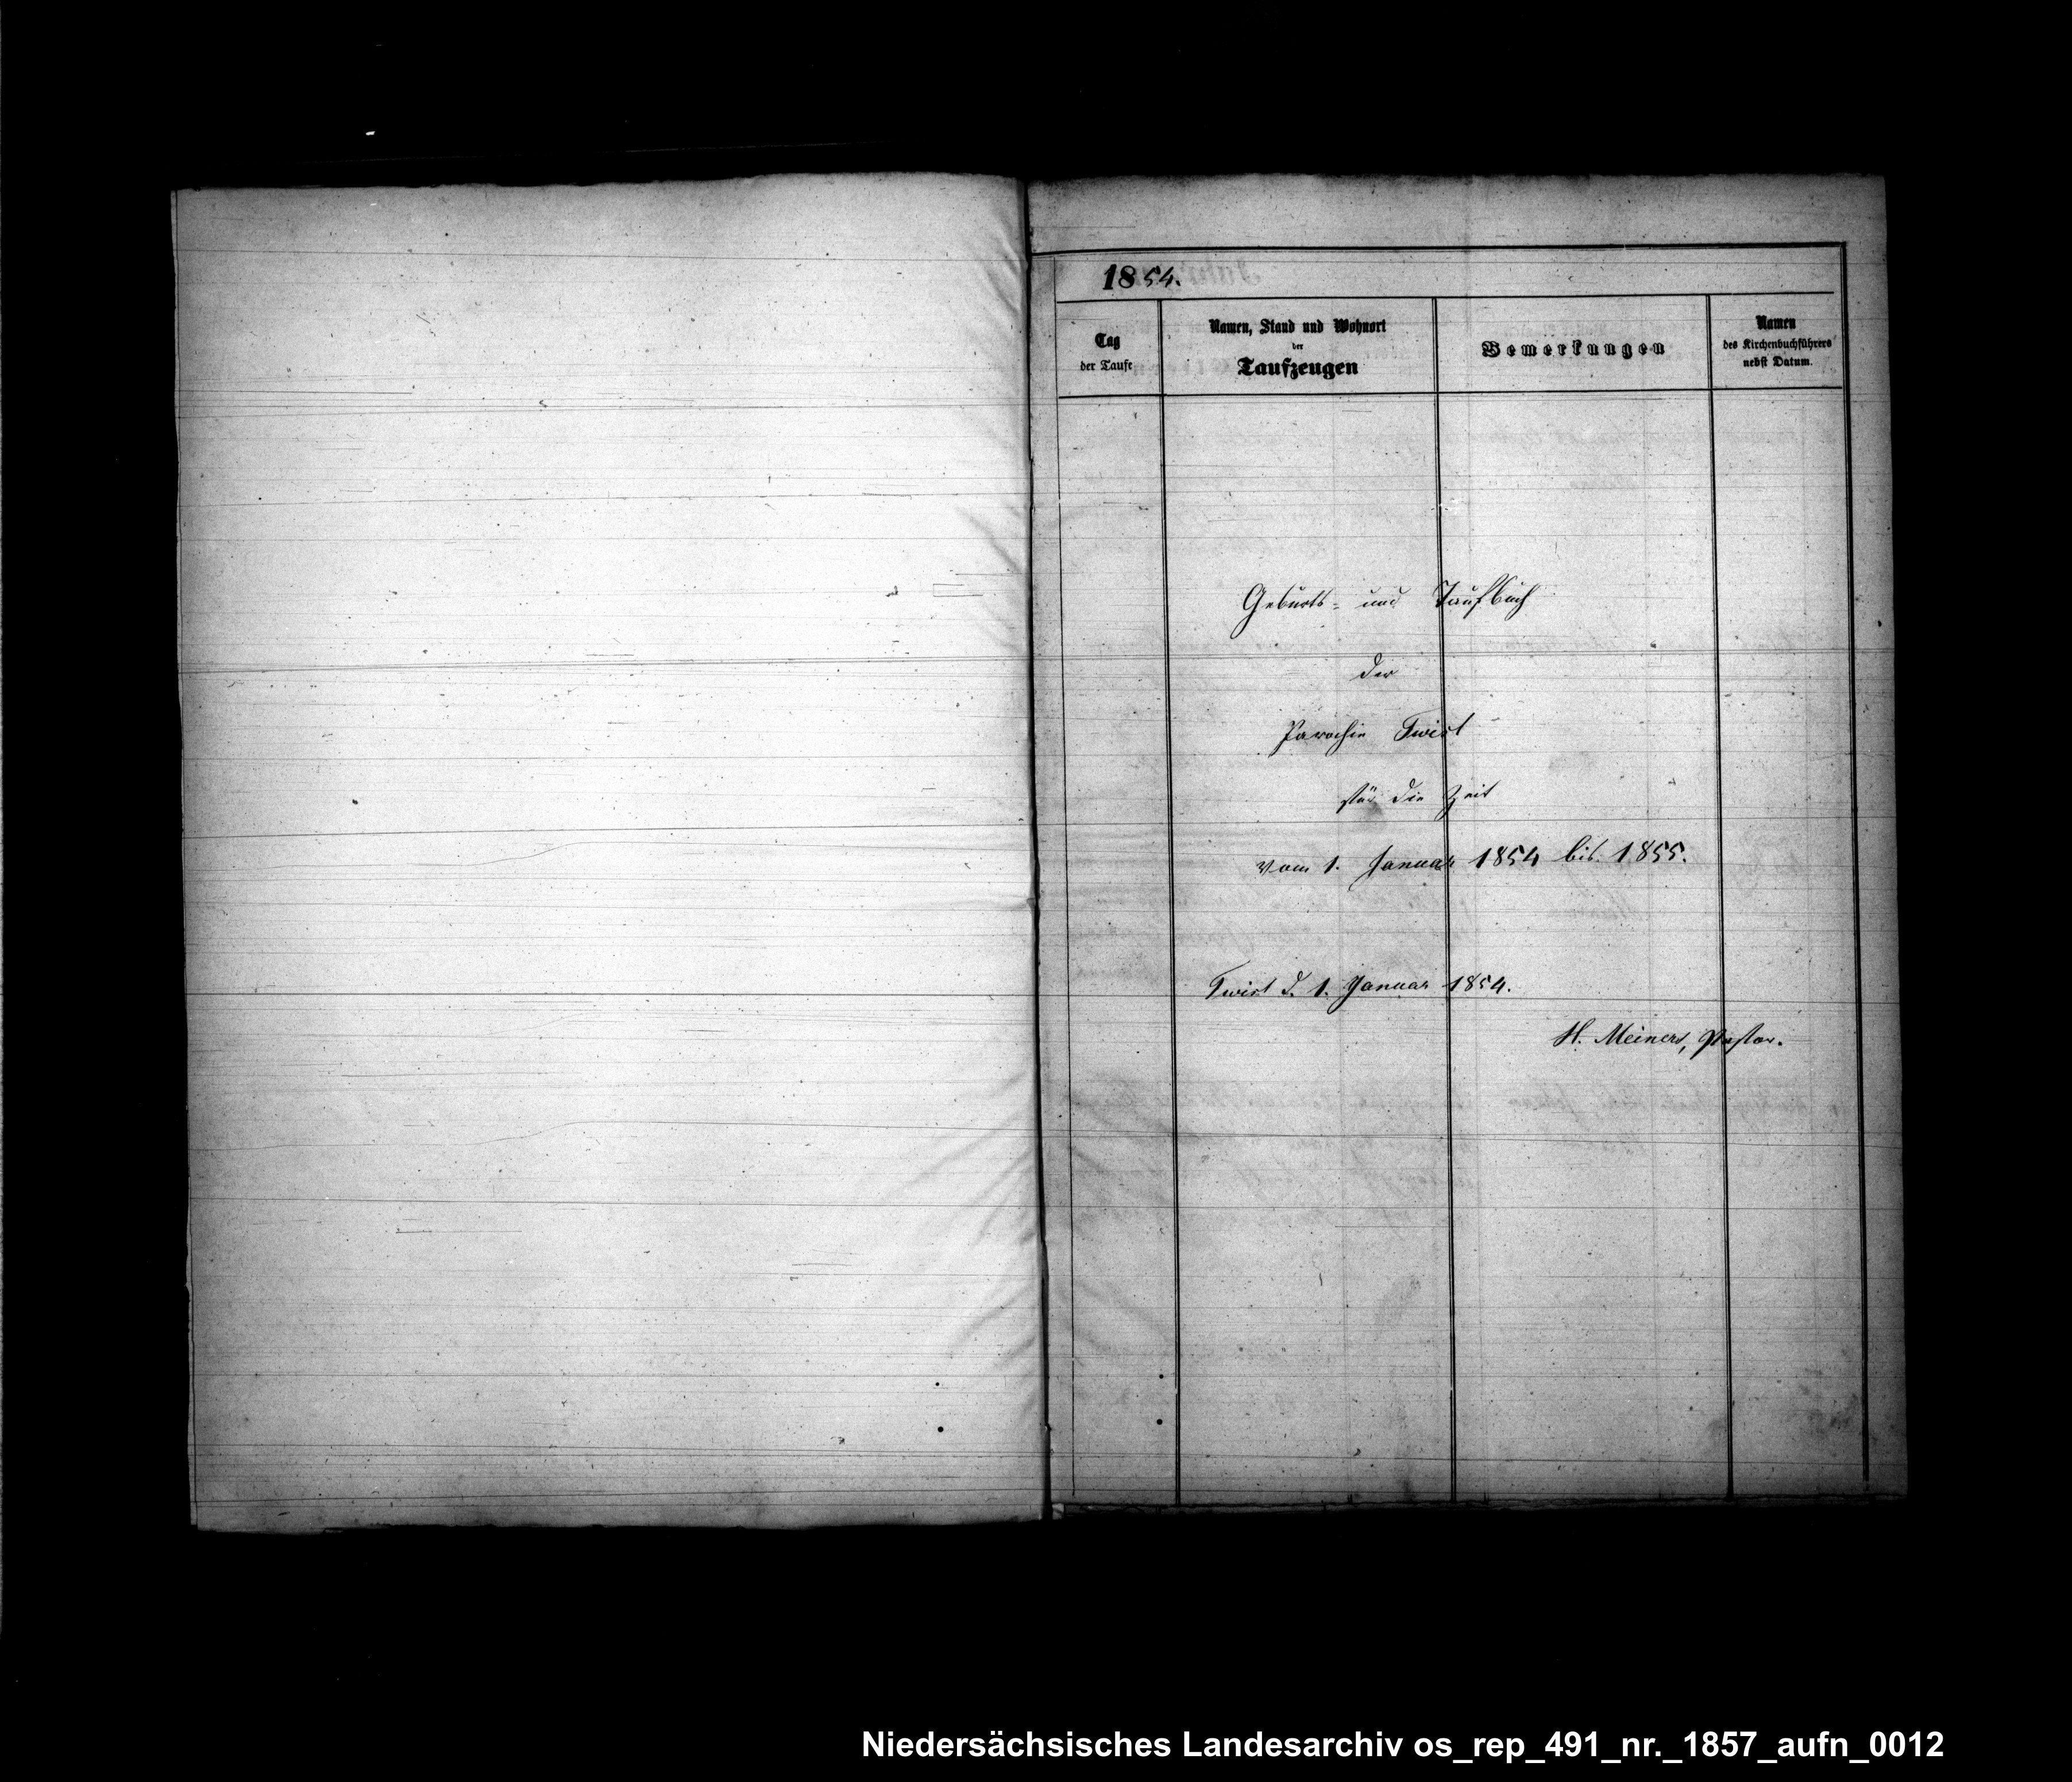 1854.
Tag
der Taufe
Namen, Stand und Wohnort
der
Taufzeugen
Bemerkungen
Namen
des Kirchenbuchführers
nebst Datum.
Geburts- und Taufbuch
der
Parochie Twist
für die Zeit
vom 1. Januar 1854 bis 1855.
Twist d. 1. Januar 1854.
H. Meiners, Pastor.
Niedersächsisches Landesarchiv os_rep_491_nr._1857_aufn_0012